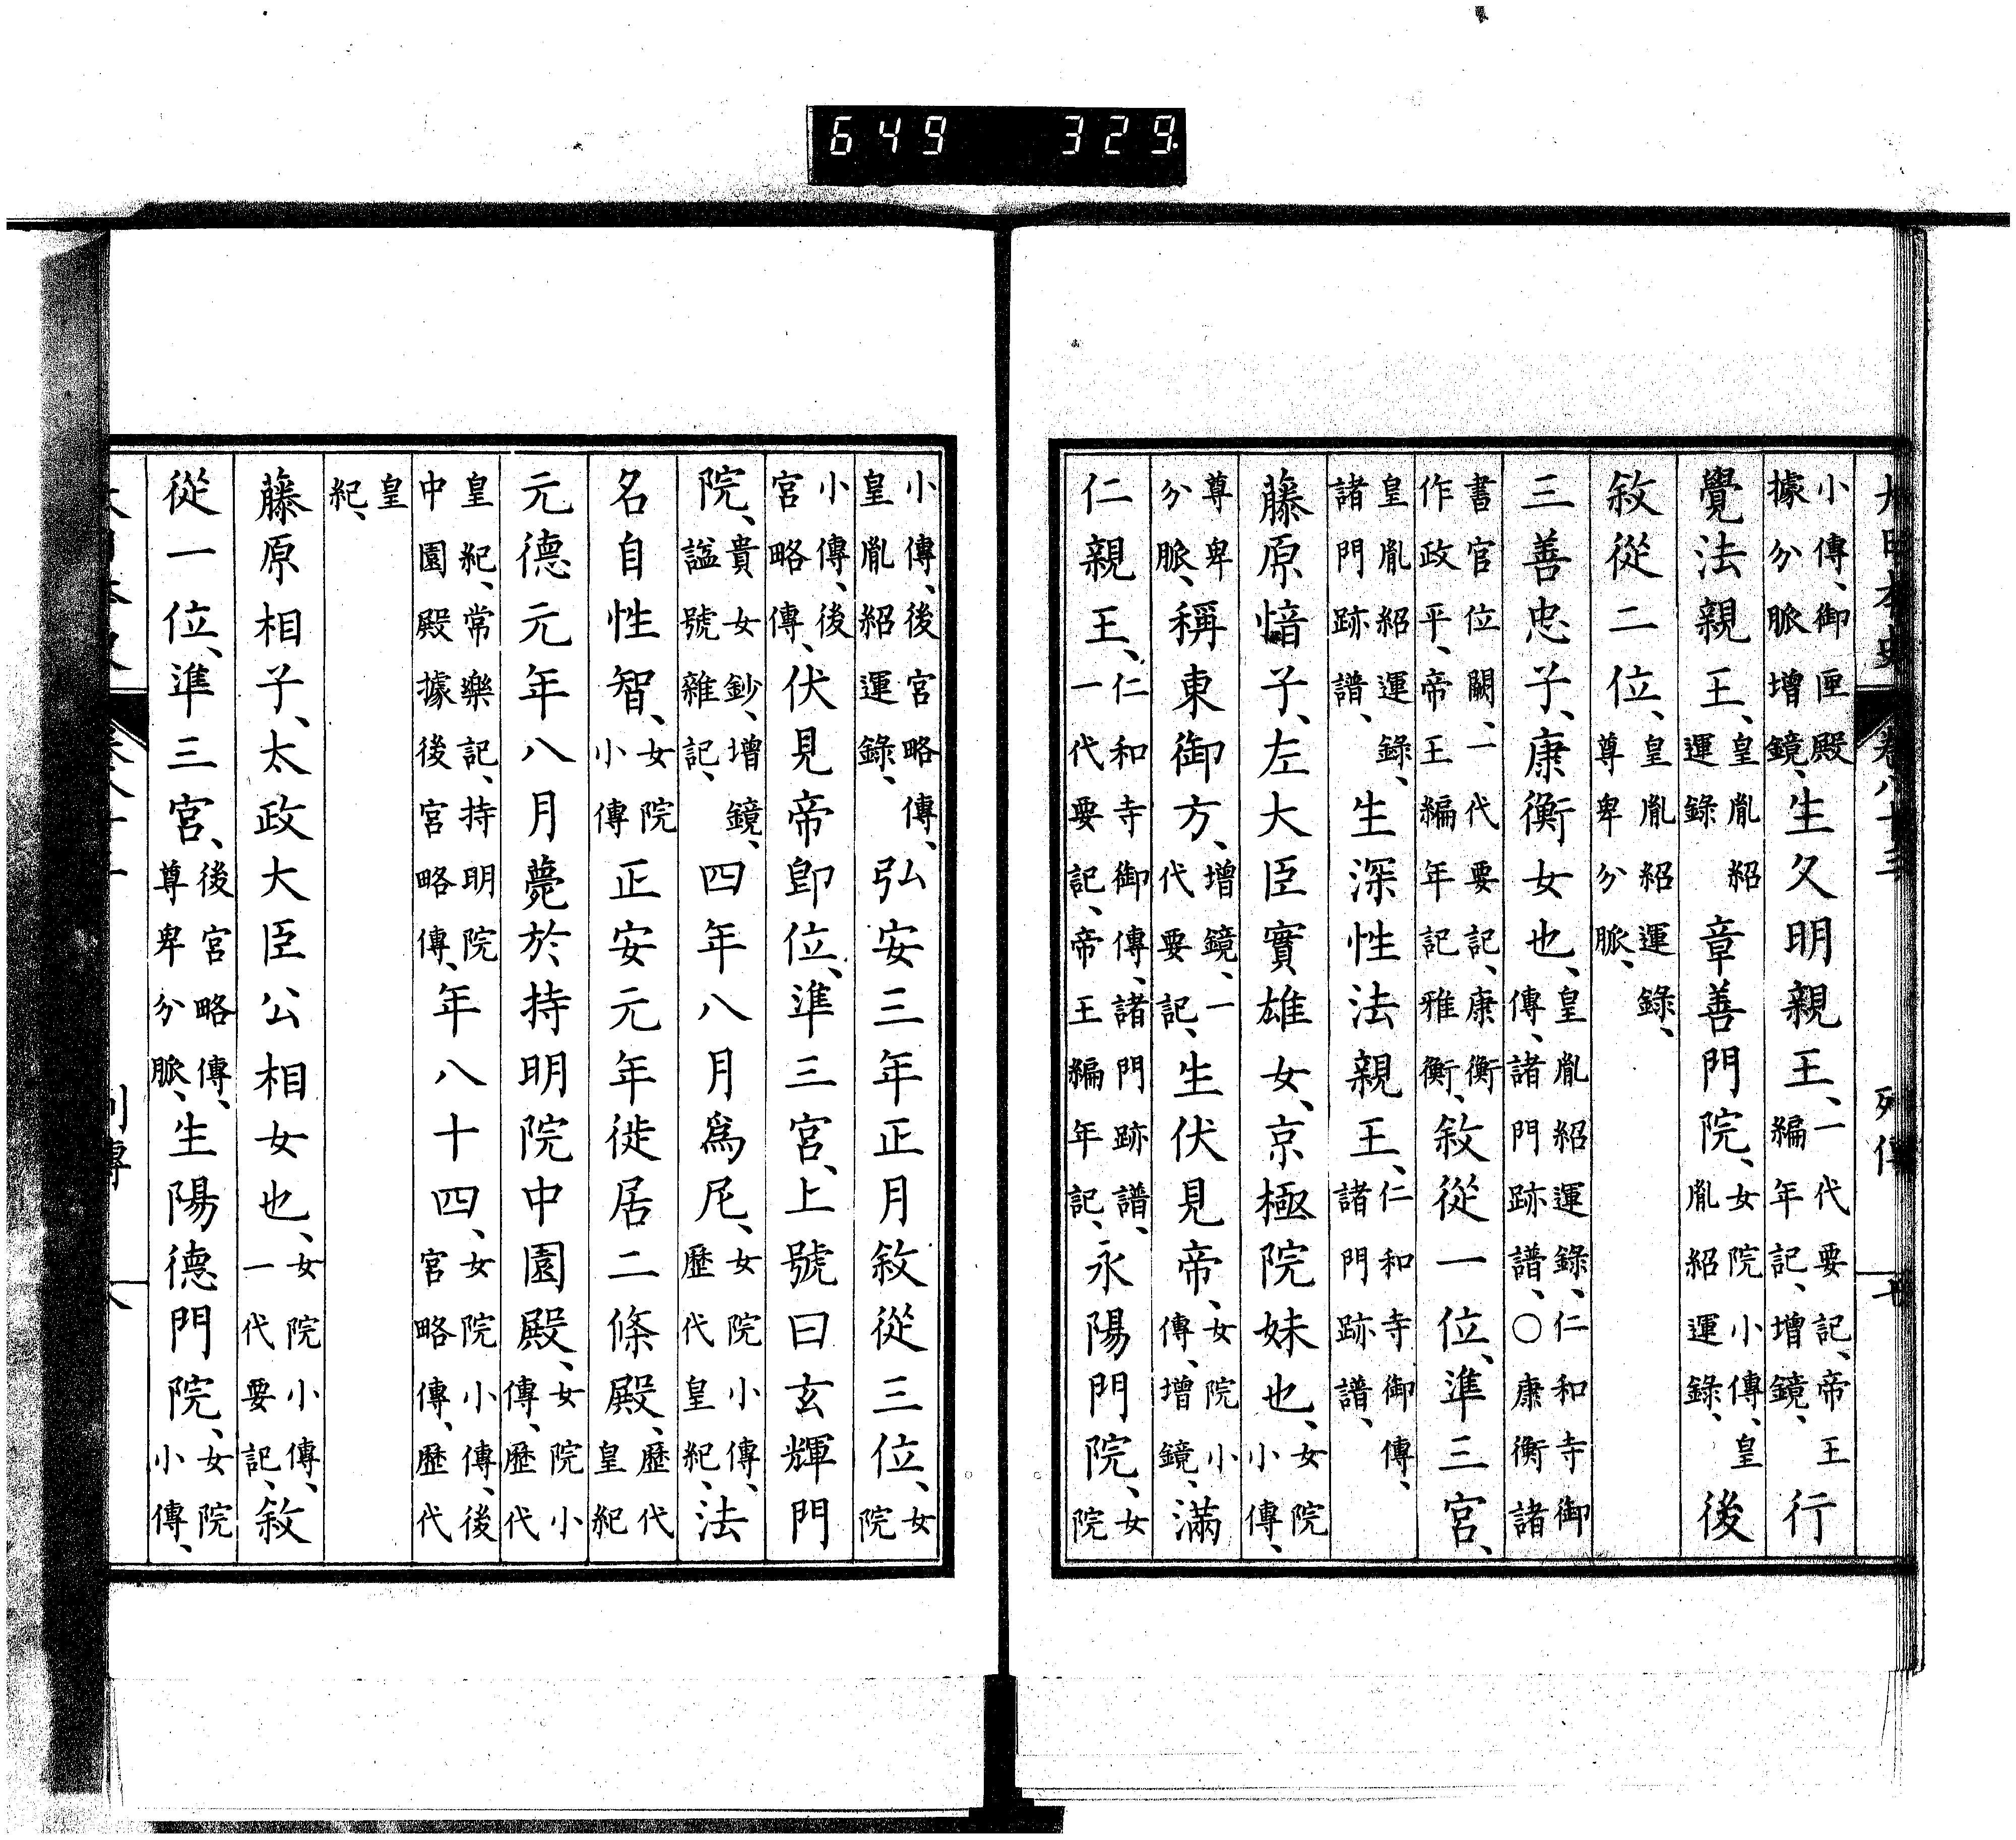 大日本史 卷八十三 列傳 七
小傳、御匣殿據分脈增鏡、生久明親王、一代要記、帝王編年記、增鏡、行
覺法親王、皇胤紹運錄章善門院、女院小傳、皇胤紹運錄、後
敘從二位、皇胤紹運錄、尊卑分脈、
三善忠子、康衡女也、皇胤紹運錄、仁和寺御傳、諸門跡譜、〇康衡諸
書官位闕、一代要記、康衡作政平、帝王編年記雅衡、敘從一位、準三宮、
皇胤紹運錄、諸門跡譜、生深性法親王、仁和寺御傳、諸門跡譜、
藤原愔子、左大臣實雄女、京極院妹也、女院小傳、
尊卑分脈、稱東御方、增鏡、一代要記、生伏見帝、女院小傳、增鏡、滿
仁親王、仁和寺御傳、諸門跡譜、一代要記、帝王編年記、永陽門院、女院
小傳、後宮略傳、皇胤紹運錄、弘安三年正月敘從三位、女院
小傳、後宮略傳、伏見帝卽位、準三宮、上號曰玄輝門
院、貴女鈔、增鏡、謚號雜記、四年八月爲尼、女院小傳、歷代皇紀、法
名自性智、女院小傳正安元年徙居二條殿、歷代皇紀
元德元年八月薨於持明院中園殿、女院小傳、歷代
皇紀、常樂記、持明院中園殿據後宮略傳、年八十四、女院小傳、後宮略傳、歷代
皇紀、
藤原相子、太政大臣公相女也、女院小傳、一代要記、敘
從一位、準三宮、後宮略傳、尊卑分脈、生陽德門院、女院小傳、
列傳
649 329